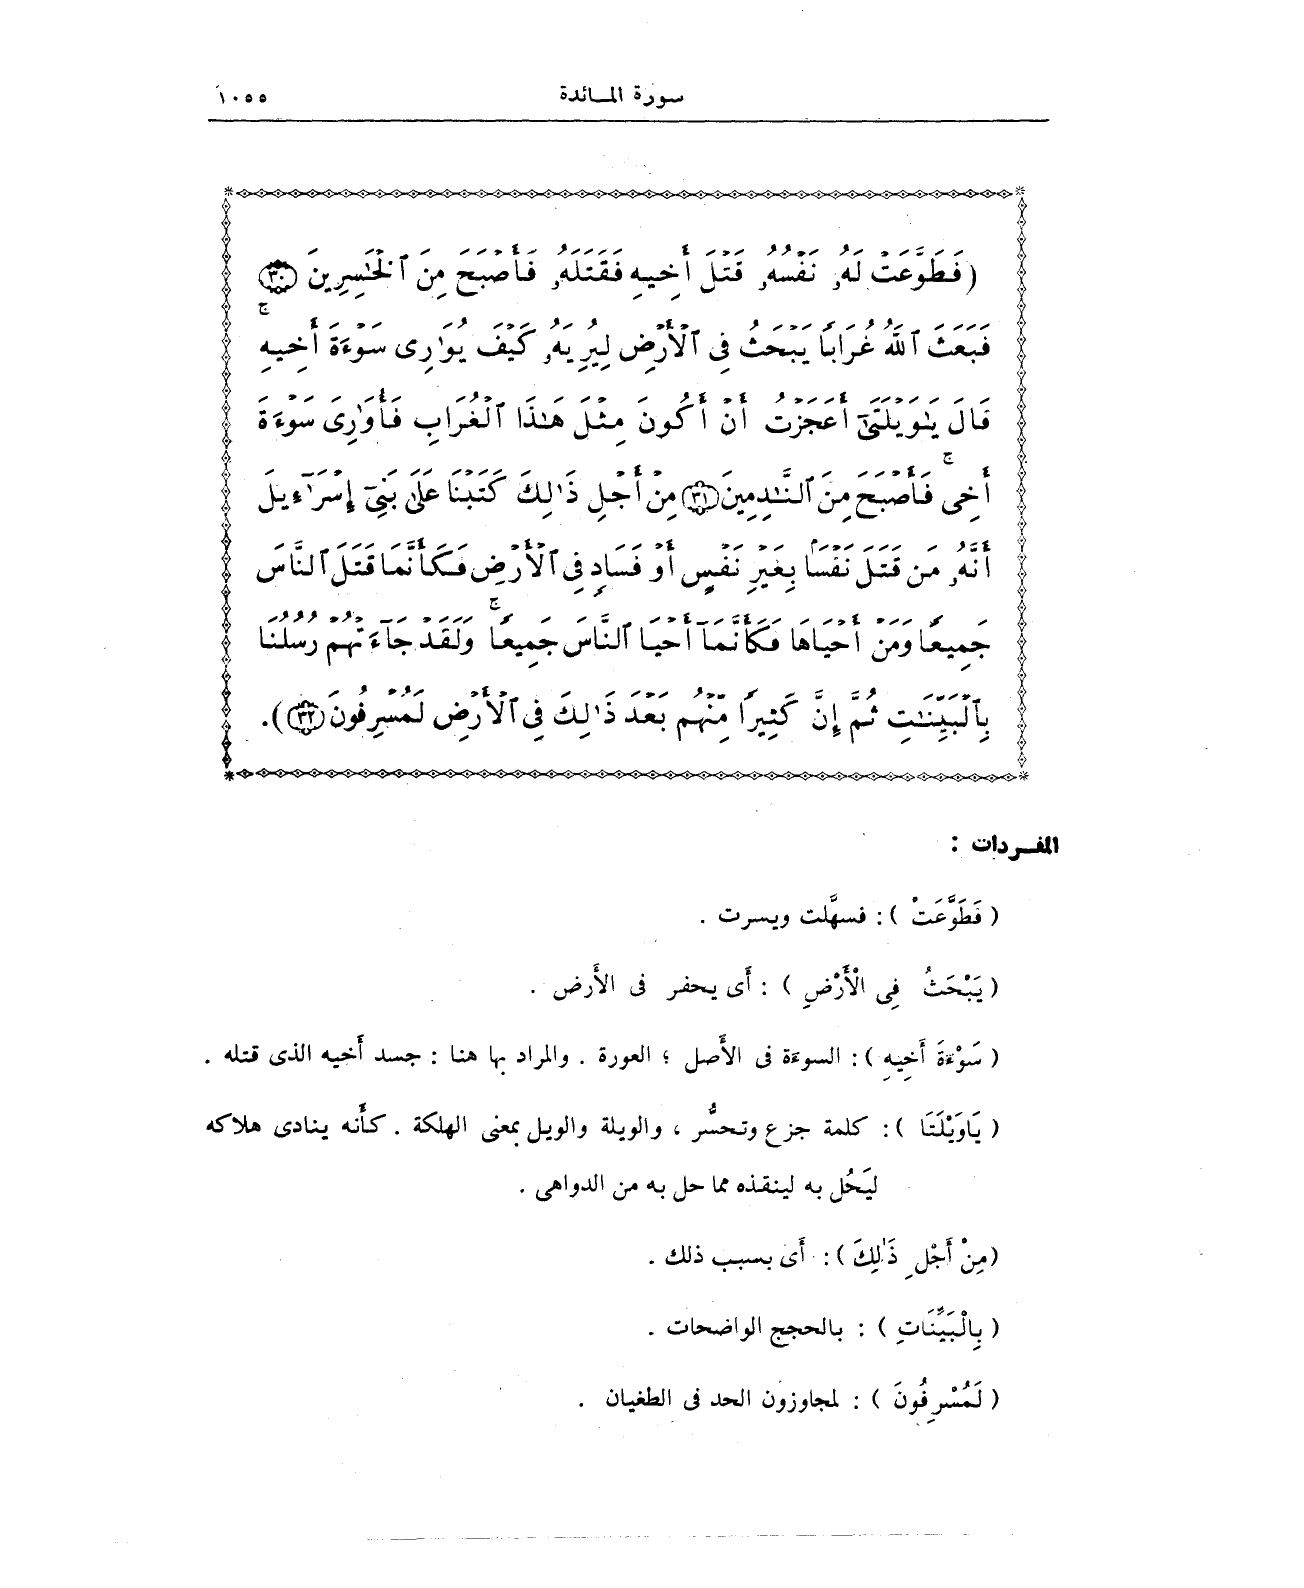 سورة المائدة ١٠٥٥
(فَطَوَّعَتْ لَهُۥ نَفْسُهُۥ قَتْلَ أَخِيهِ فَقَتَلَهُۥ فَأَصْبَحَ مِنَ ٱلْخَـٰسِرِينَ ٣٠
فَبَعَثَ ٱللَّهُ غُرَابًا يَبْحَثُ فِى ٱلْأَرْضِ لِيُرِيَهُۥ كَيْفَ يُوَٰرِى سَوْءَةَ أَخِيهِ ۚ
قَالَ يَـٰوَيْلَتَىٰٓ أَعَجَزْتُ أَنْ أَكُونَ مِثْلَ هَـٰذَا ٱلْغُرَابِ فَأُوَٰرِىَ سَوْءَةَ
أَخِى ۖ فَأَصْبَحَ مِنَ ٱلنَّـٰدِمِينَ ٣١ مِنْ أَجْلِ ذَٰلِكَ كَتَبْنَا عَلَىٰ بَنِىٓ إِسْرَٰٓءِيلَ
أَنَّهُۥ مَن قَتَلَ نَفْسًۢا بِغَيْرِ نَفْسٍ أَوْ فَسَادٍ فِى ٱلْأَرْضِ فَكَأَنَّمَا قَتَلَ ٱلنَّاسَ
جَمِيعًا وَمَنْ أَحْيَاهَا فَكَأَنَّمَآ أَحْيَا ٱلنَّاسَ جَمِيعًا ۚ وَلَقَدْ جَآءَتْهُمْ رُسُلُنَا
بِٱلْبَيِّنَـٰتِ ثُمَّ إِنَّ كَثِيرًا مِّنْهُم بَعْدَ ذَٰلِكَ فِى ٱلْأَرْضِ لَمُسْرِفُونَ ٣٢).
المفـردات :
( فَطَوَّعَتْ ) : فسهَّلت ويسرت .
( يَبْحَثُ فِى الْأَرْضِ ) : أَى يحفر فى الأَرض .
( سَوْءَةَ أَخِيهِ ) : السوءَة فى الأَصل ؛ العورة . والمراد بها هنا : جسد أَخيه الذى قتله .
( يَاوَيْلَتَا ) : كلمة جزع وتحسُّر ، والويلة والويل بمعنى الهلكة . كأَنه ينادى هلاكه
ليَحُل به لينقذه مما حل به من الدواهى .
(مِنْ أَجْلِ ذَٰلِكَ ) : أَى بسبب ذلك .
( بِالْبَيِّنَاتِ ) : بالحجج الواضحات .
( لَمُسْرِفُونَ ) : لمجاوزون الحد فى الطغيان .